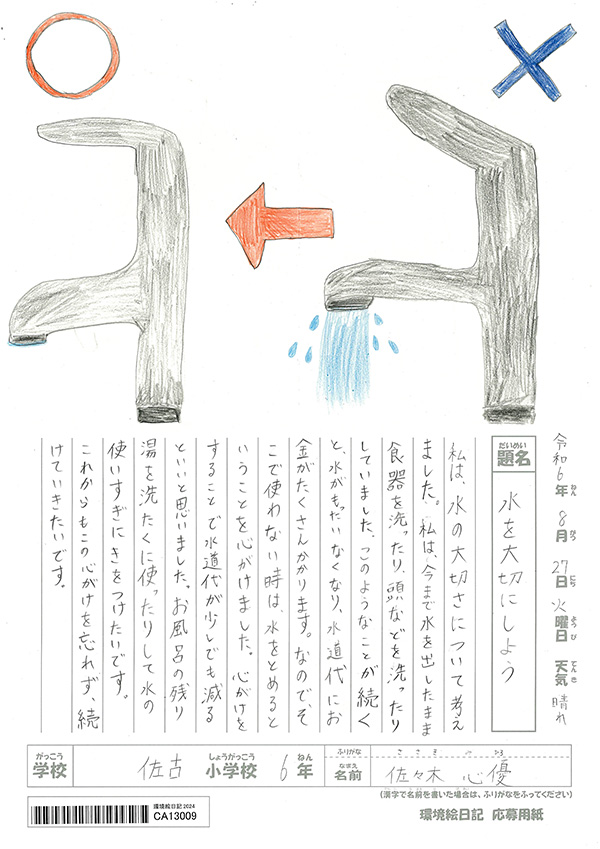 令和6年 8月 27日 火曜日 天気 晴れ
ねん がつ にち ようび てんき
だいめい
題名 水を大切にしよう
私は、水の大切さについて考え
ました。私は、今まで水を出したまま
食器を洗ったり、頭などを洗ったり
していました。このようなことが続く
と、水がもったいなくなり、水道代にお
金がたくさんかかります。なので、そ
こで使わない時は、水をとめると
いうことを心がけました。心がけを
することで水道代が少しでも減る
といいと思いました。お風呂の残り
湯を洗たくに使ったりして水の
使いすぎにきをつけたいです。
これからもこの心がけを忘れず、続
けていきたいです。
がっこう しょうがっこう ねん
学校 佐古 小学校 6年
ふりがな ささき みゆ
なまえ
名前 佐々木 心優
(漢字で名前を書いた場合は、ふりがなをふってください)
環境絵日記2024
CA13009
環境絵日記 応募用紙